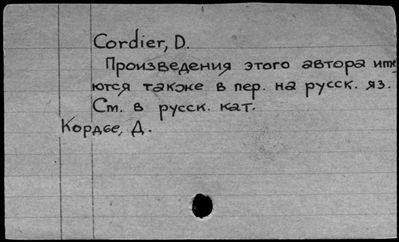 Cordier, D.
Произведения этого автора име
ются также в пер. на русск. яз.
См. в русск. кат.
Кордье, Д.